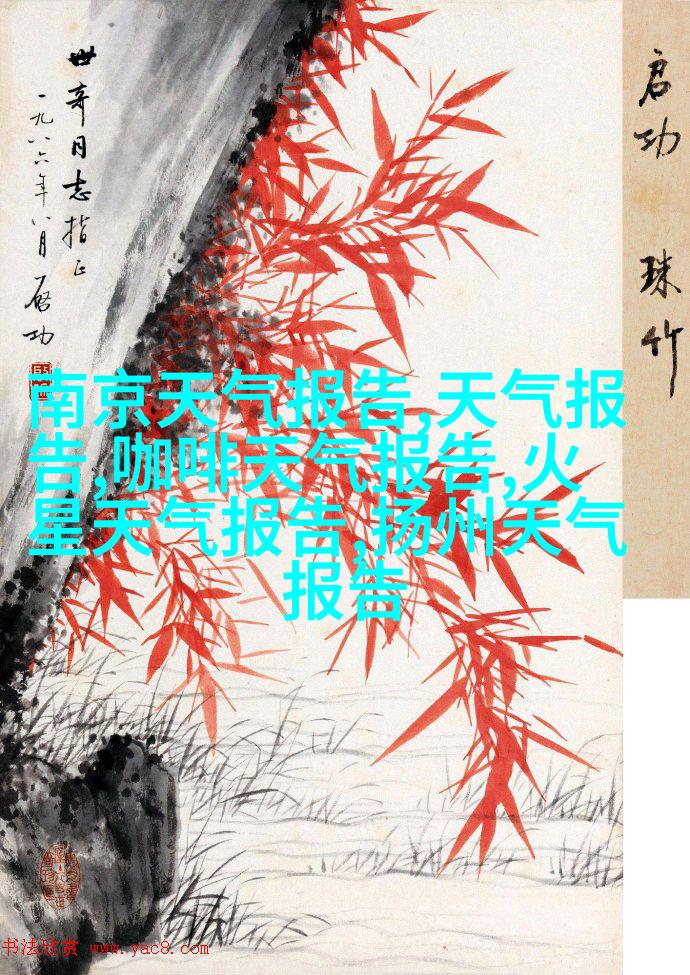 启功 珠竹
世奇同志指正
一九八六年八月 启功
南京天气报告,天气报
告,咖啡天气报告,火
星天气报告,扬州天气
报告
书法欣赏 www.yac8.com